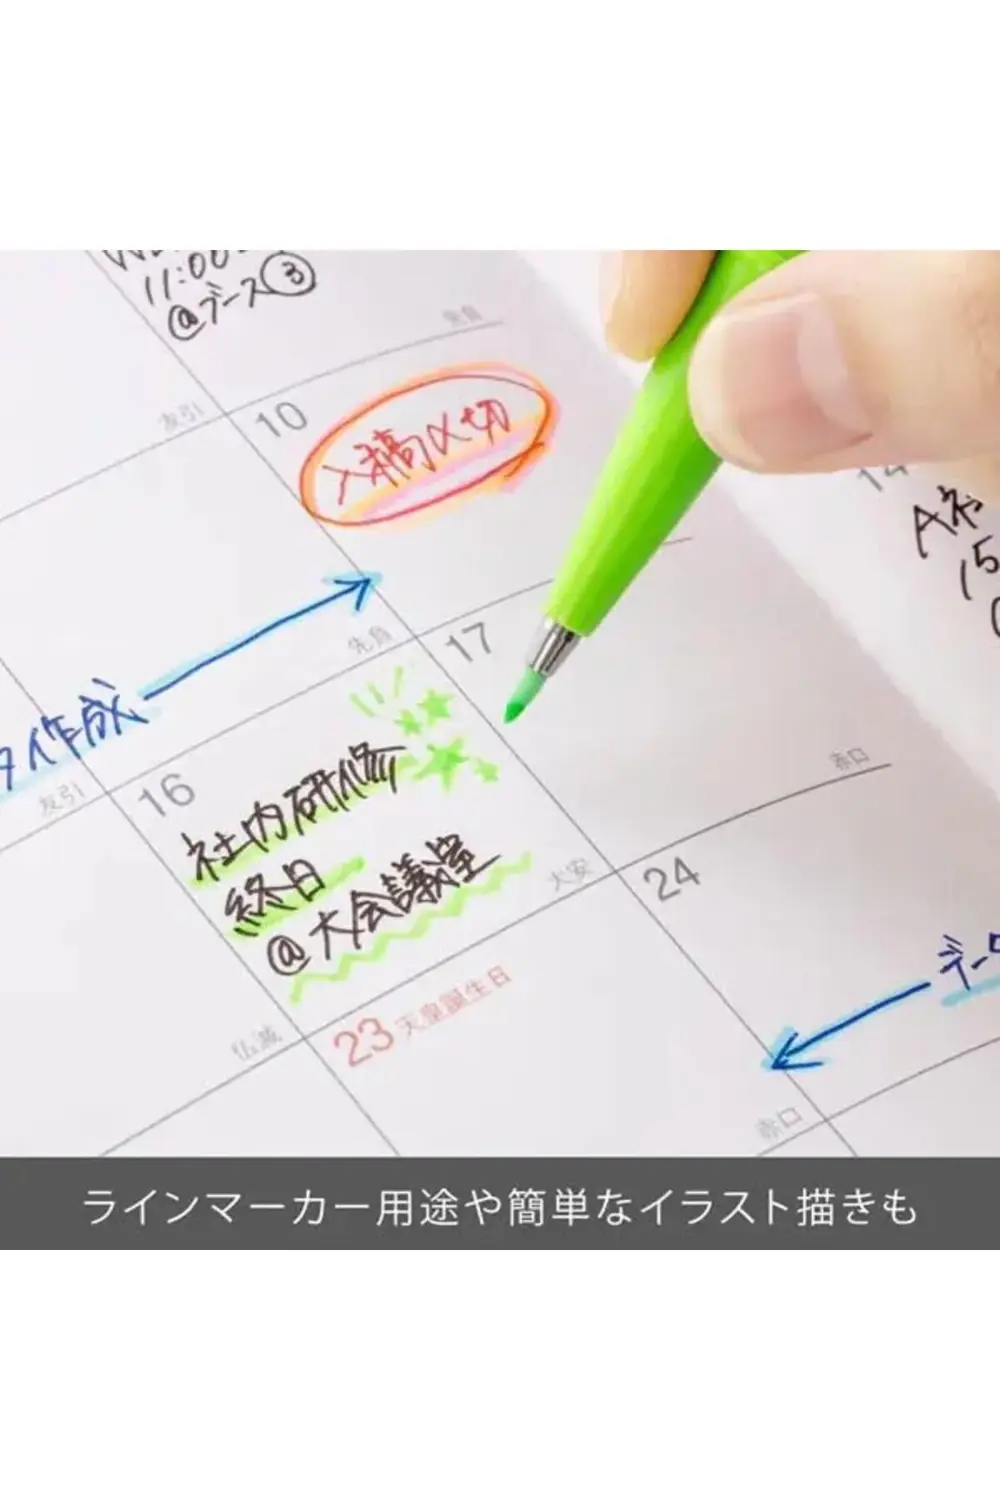 11:00
@ブース③
先負
友引
10
入稿〆切
14
A社
15
先負
17
タ作成
友引
16
社内研修
終日
@大会議室
赤口
大安
24
データ
仏滅
23 天皇誕生日
赤口
ラインマーカー用途や簡単なイラスト描きも